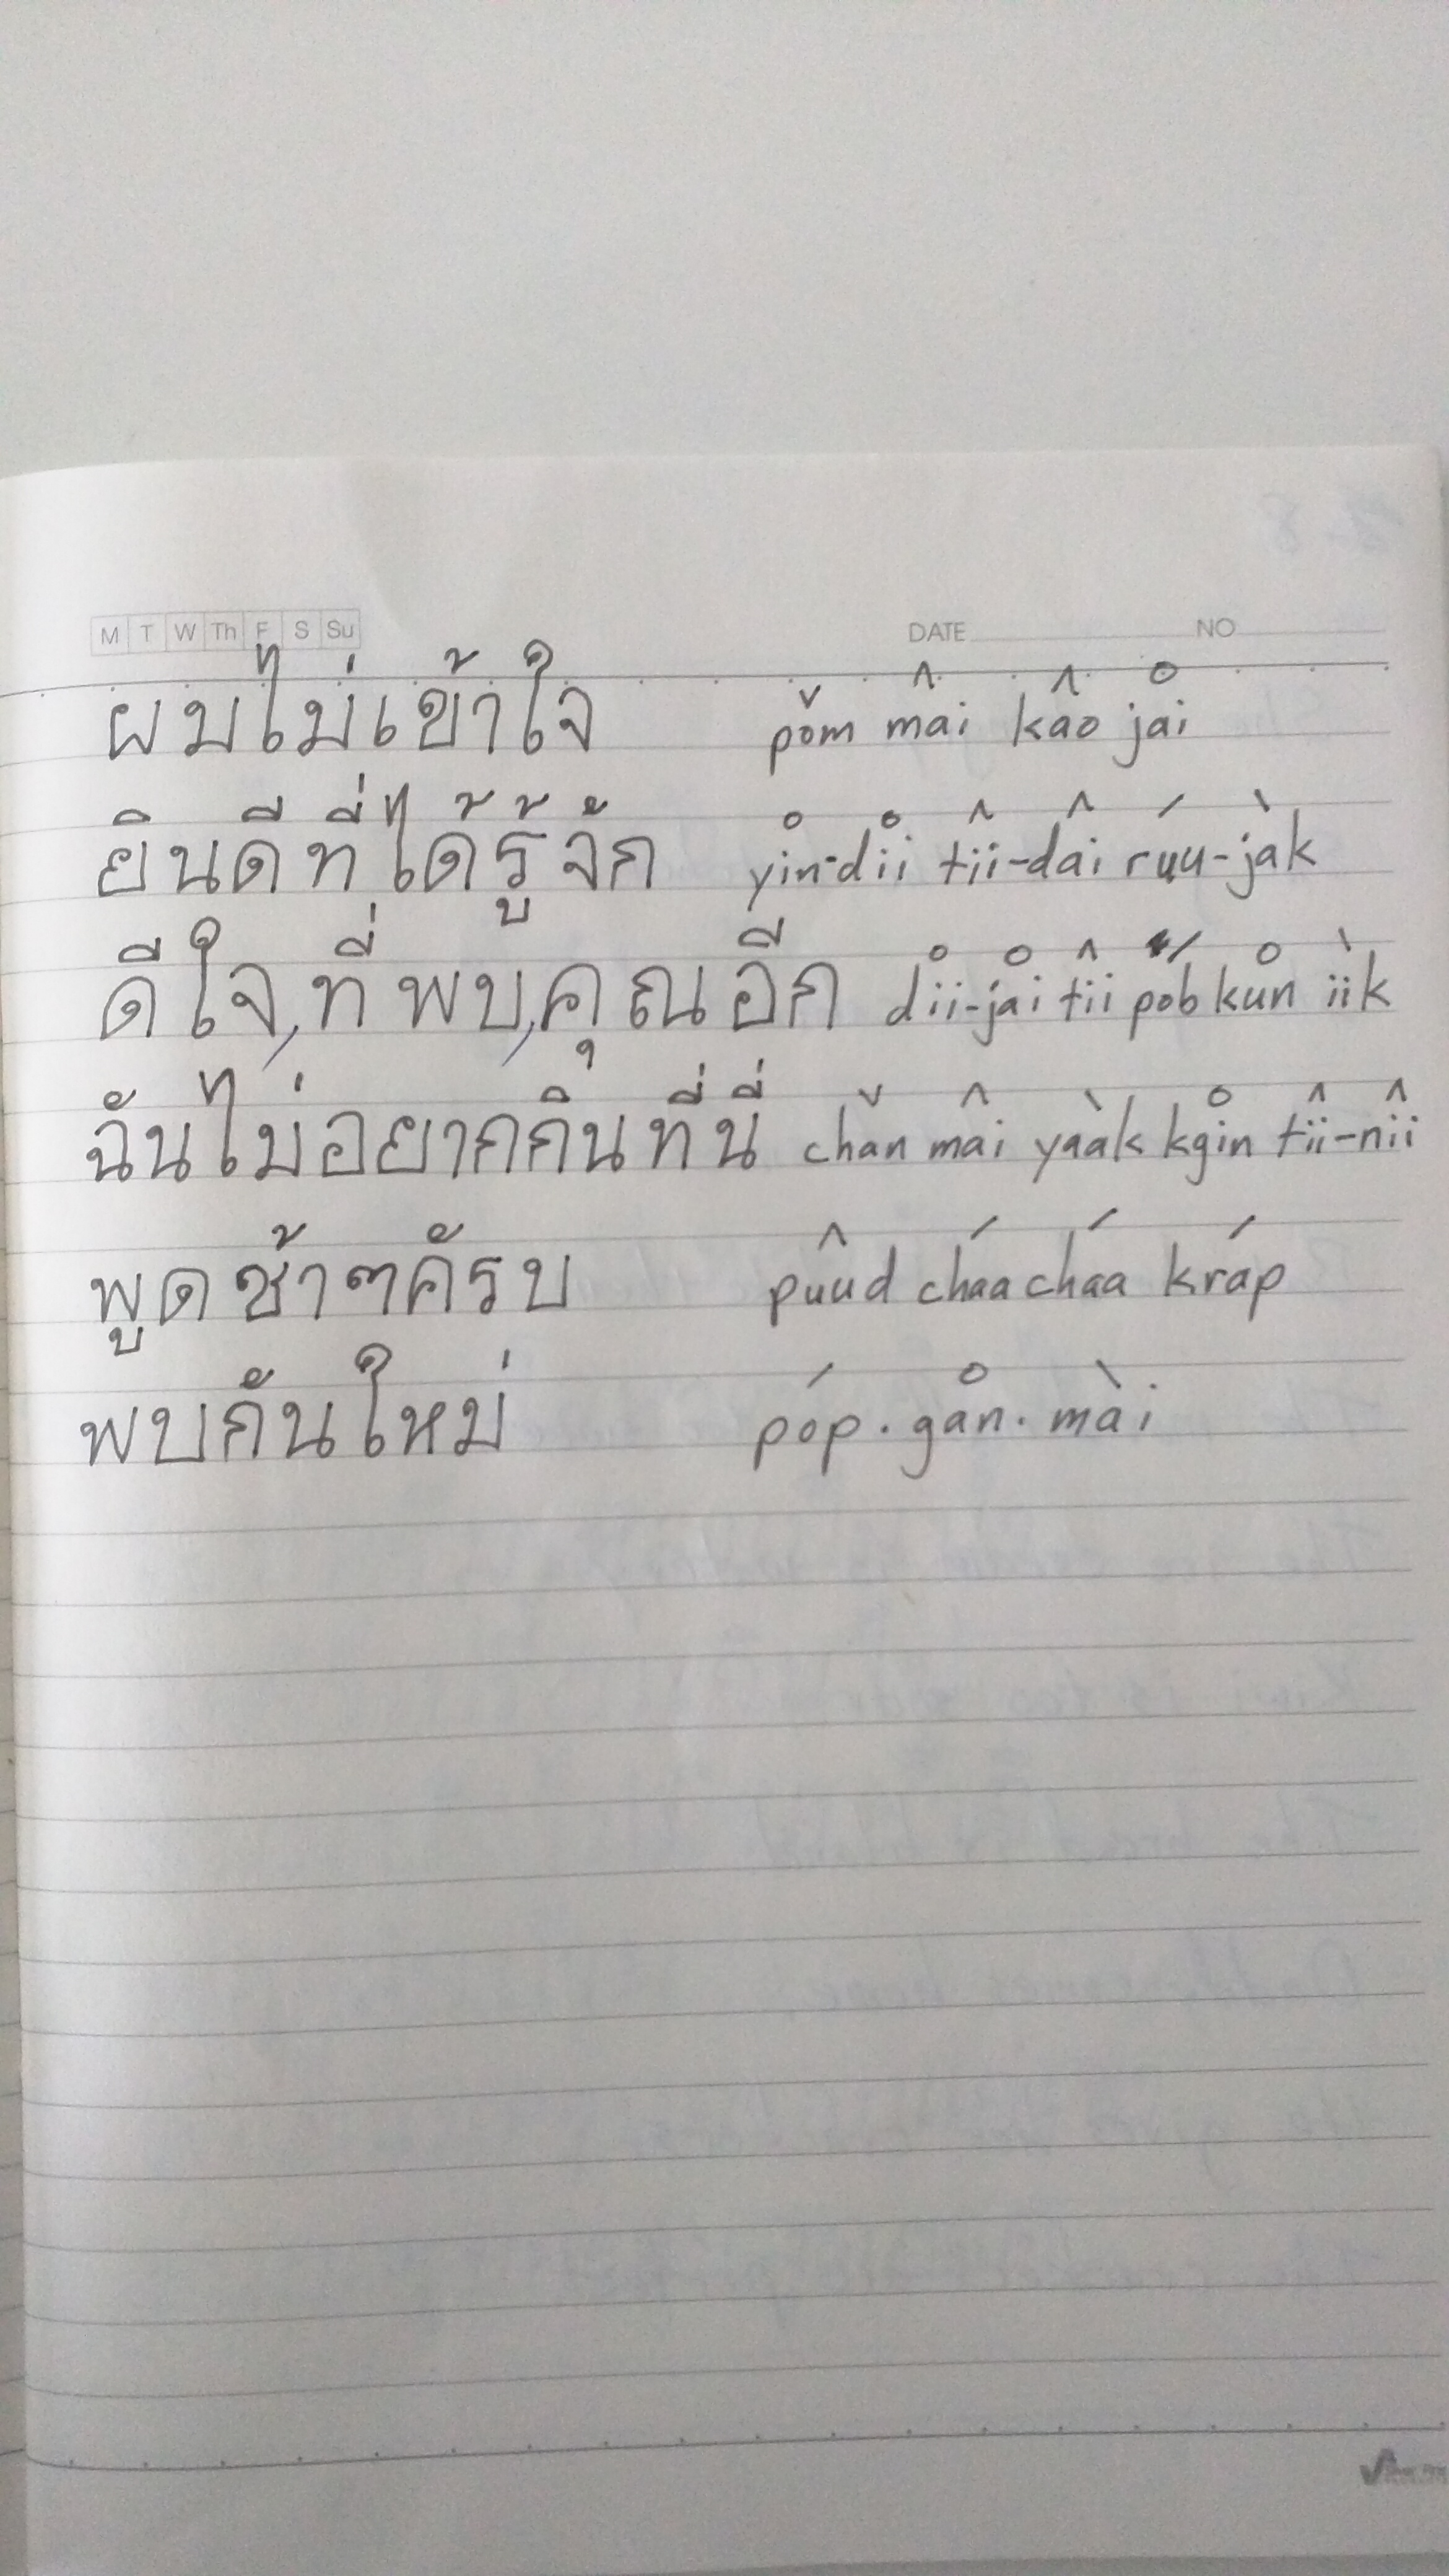 M T W Th F S Su DATE NO
ผมไม่เข้าใจ pǒm mâi kâo jai
ยินดีที่ได้รู้จัก yin-dii tîi-dâi rúu-jàk
ดีใจ,ที่พบ,คุณอีก dii-jai tîi pób kun ìik
ฉันไม่อยากกินที่นี่ chǎn mâi yàak kgin tîi-nîi
พูดช้าๆคัรบ pûud cháacháa kráp
พบกันใหม่ póp . gan . mài